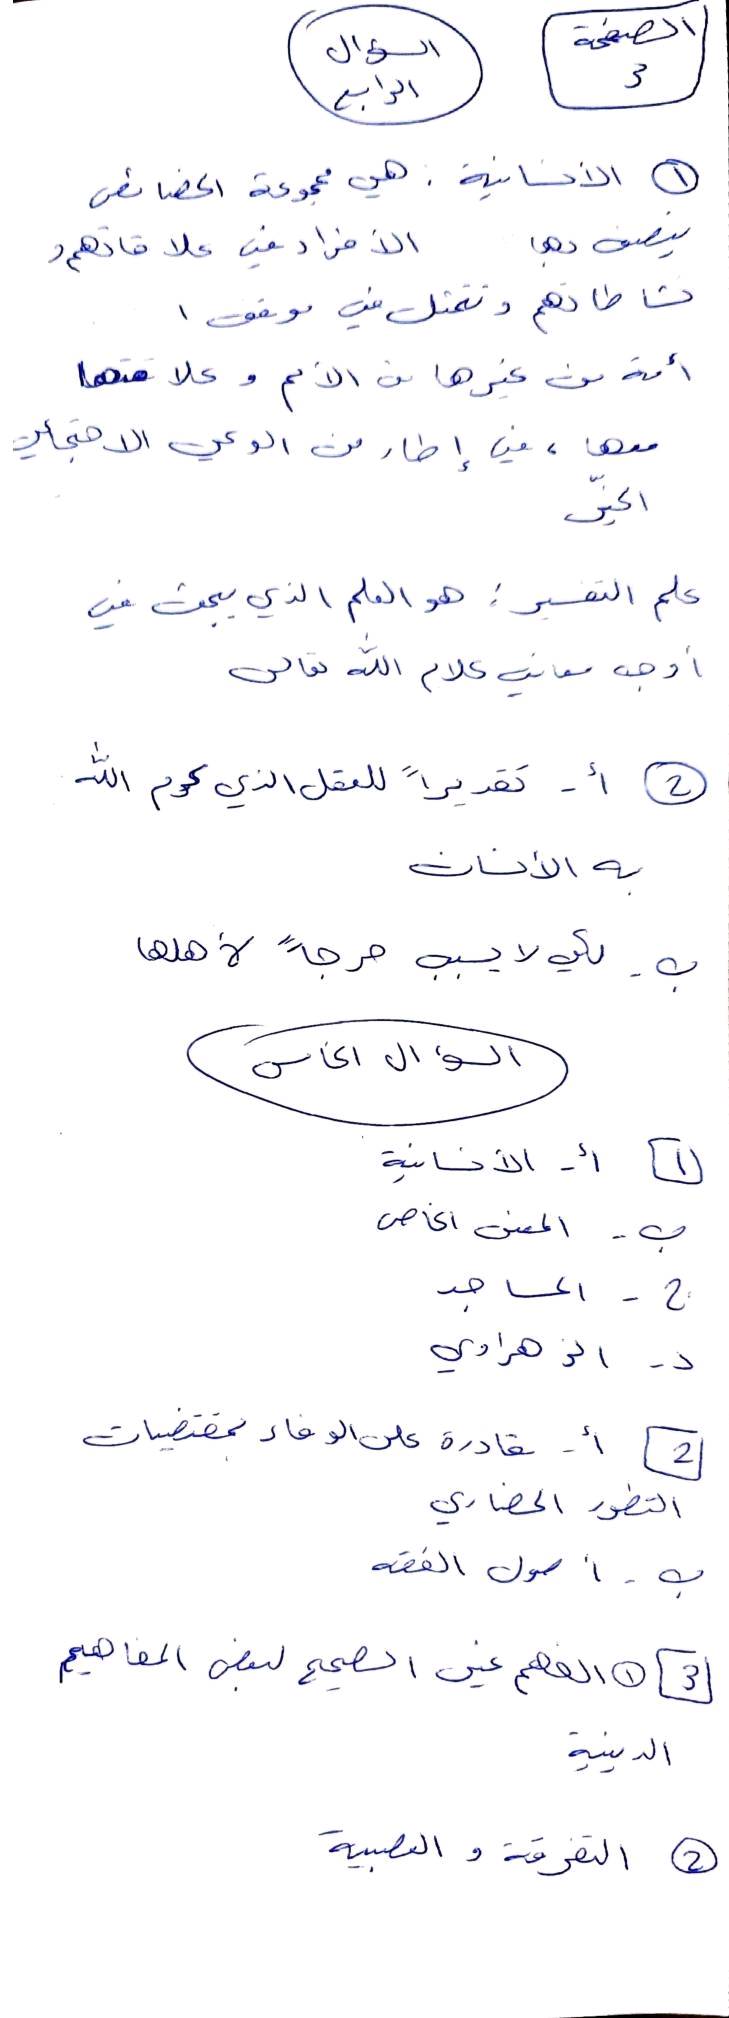 الصفحة
3
السؤال
الرابع
① الأنسانية : هي مجموعة الخصائص
يتصف بها الأفراد في علاقاتهم و
نشاطاتهم و تتمثل في موقف ا
أمة من غيرها من الأمم و علاقتها
معها ، في إطار من الوعي الاجتماعي
الخيّر
علم التفسير : هو العلم الذي يبحث في
أوجه معاني كلام الله تعالى
② أ - تقديراً للعقل الذي كرم الله
به الأنسان
ب - لكي لا يسبب حرجاً لأهلها
السؤال الخامس
1 أ - الأنسانية
ب - المعنى الخاص
ج - المساجد
د - الزهراوي
2 أ - قادرة على الوفاء بمقتضيات
التطور الحضاري
ب - أصول الفقه
3 ① الفهم غير الصحيح لبعض المفاهيم
الدينية
② التفرقة و العصبية